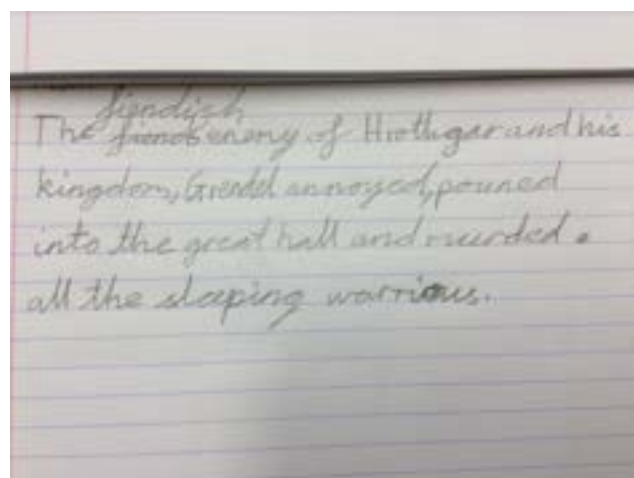 fiendish
The enemy of Hrothgar and his
kingdom, Grendel annoyed, pouned
into the great hall and murded.
all the sleeping warrious.